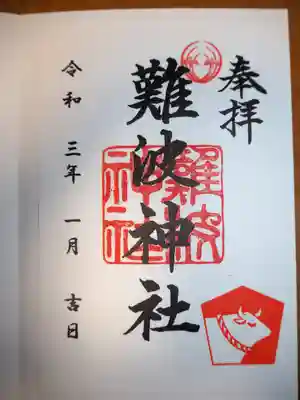 奉拝
難波神社
難波
神社
令和三年一月吉日